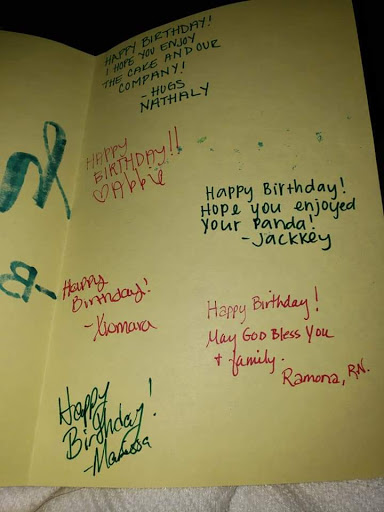 HAPPY BIRTHDAY!
I HOPE YOU ENJOY
THE CAKE AND OUR
COMPANY!
- HUGS
NATHALY
HAPPY
BIRTHDAY!!
♡Abbie
Happy Birthday!
Hope you enjoyed
your Panda!
- Jackkey
Happy
Birthday!
- Xiomara
Happy Birthday!
May God Bless You
+ family.
Ramona, RN.
Happy
Birthday!
- Marissa